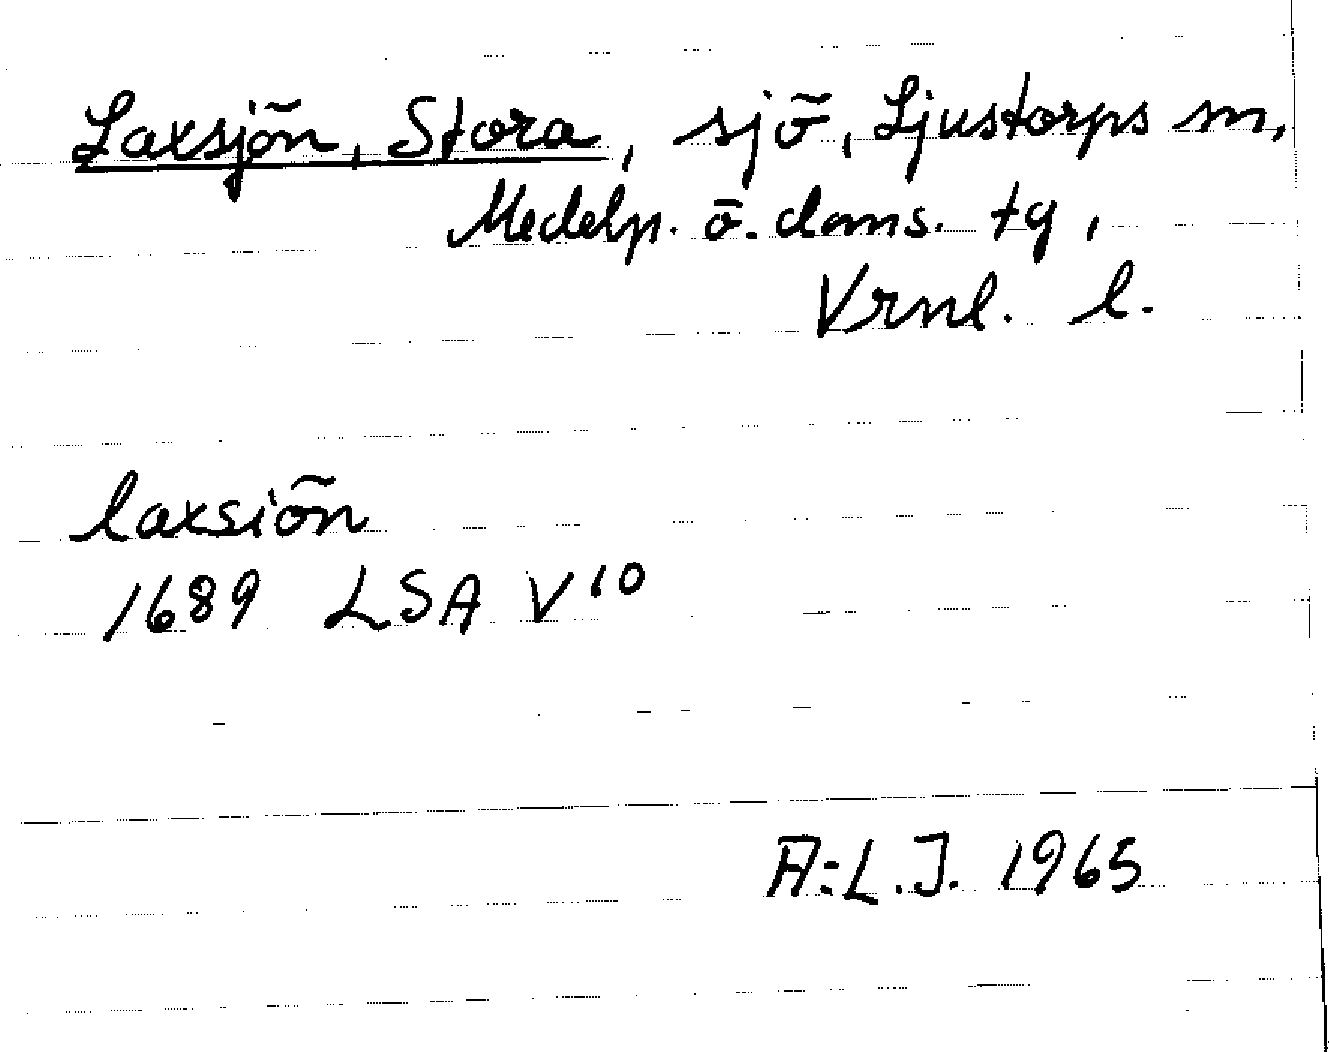 Laxsjön, Stora, sjö, Ljustorps sn,
Medelp. ö. doms. tg,
Vrnl. l.
laxsiön
1689 LSA V10
A:L.J. 1965